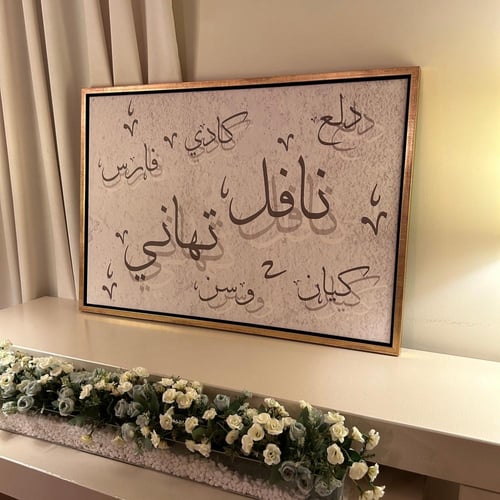 دلع
كادي
فارس
نافل
تهاني
كيان
وسن